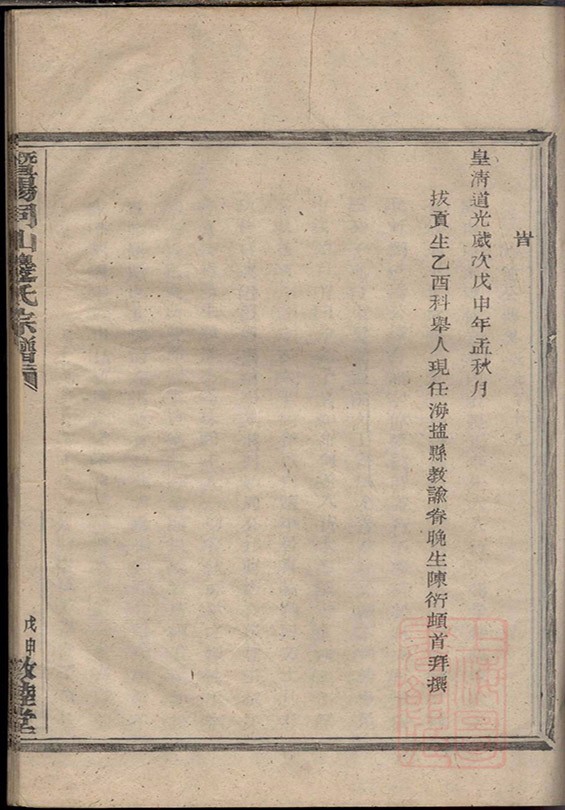 旹
皇清道光歲次戊申年孟秋月
拔貢生乙酉科舉人現任海塩縣教諭眷晚生陳衍頓首拜撰
山邊氏宗譜
戊申
敦睦堂